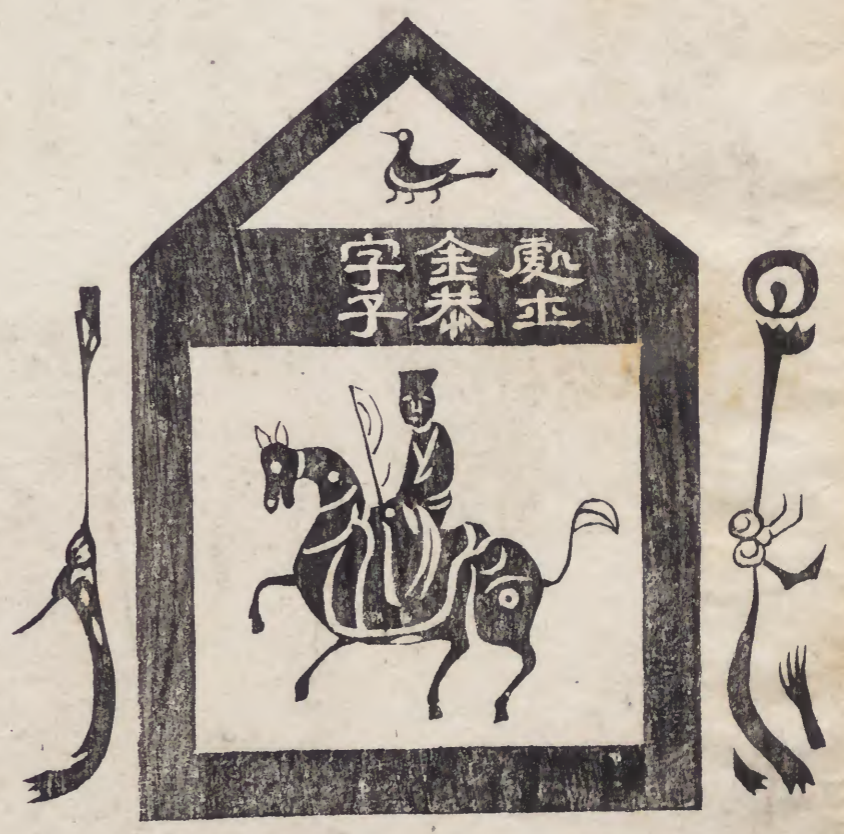 處士
金恭
字子